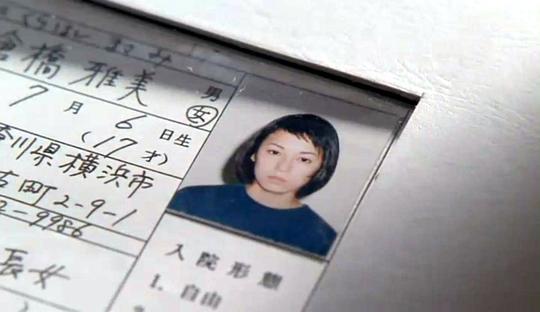 くらはし まさみ
倉橋 雅美 男
女
7月 6日生
(17才)
奈川県横浜市
古町2-9-1
2-9986
長女
入院形態
1. 自由